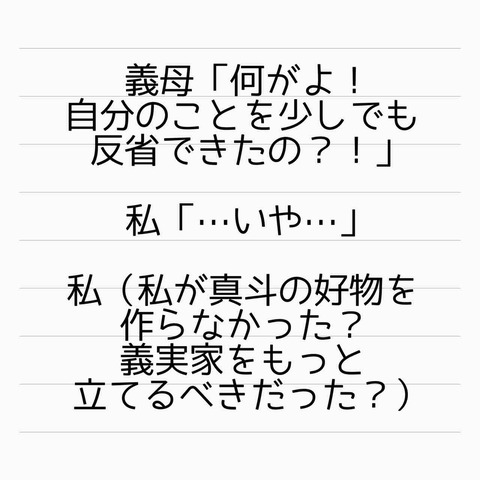 義母「何がよ！
自分のことを少しでも
反省できたの？！」
私「…いや…」
私（私が真斗の好物を
作らなかった？
義実家をもっと
立てるべきだった？）